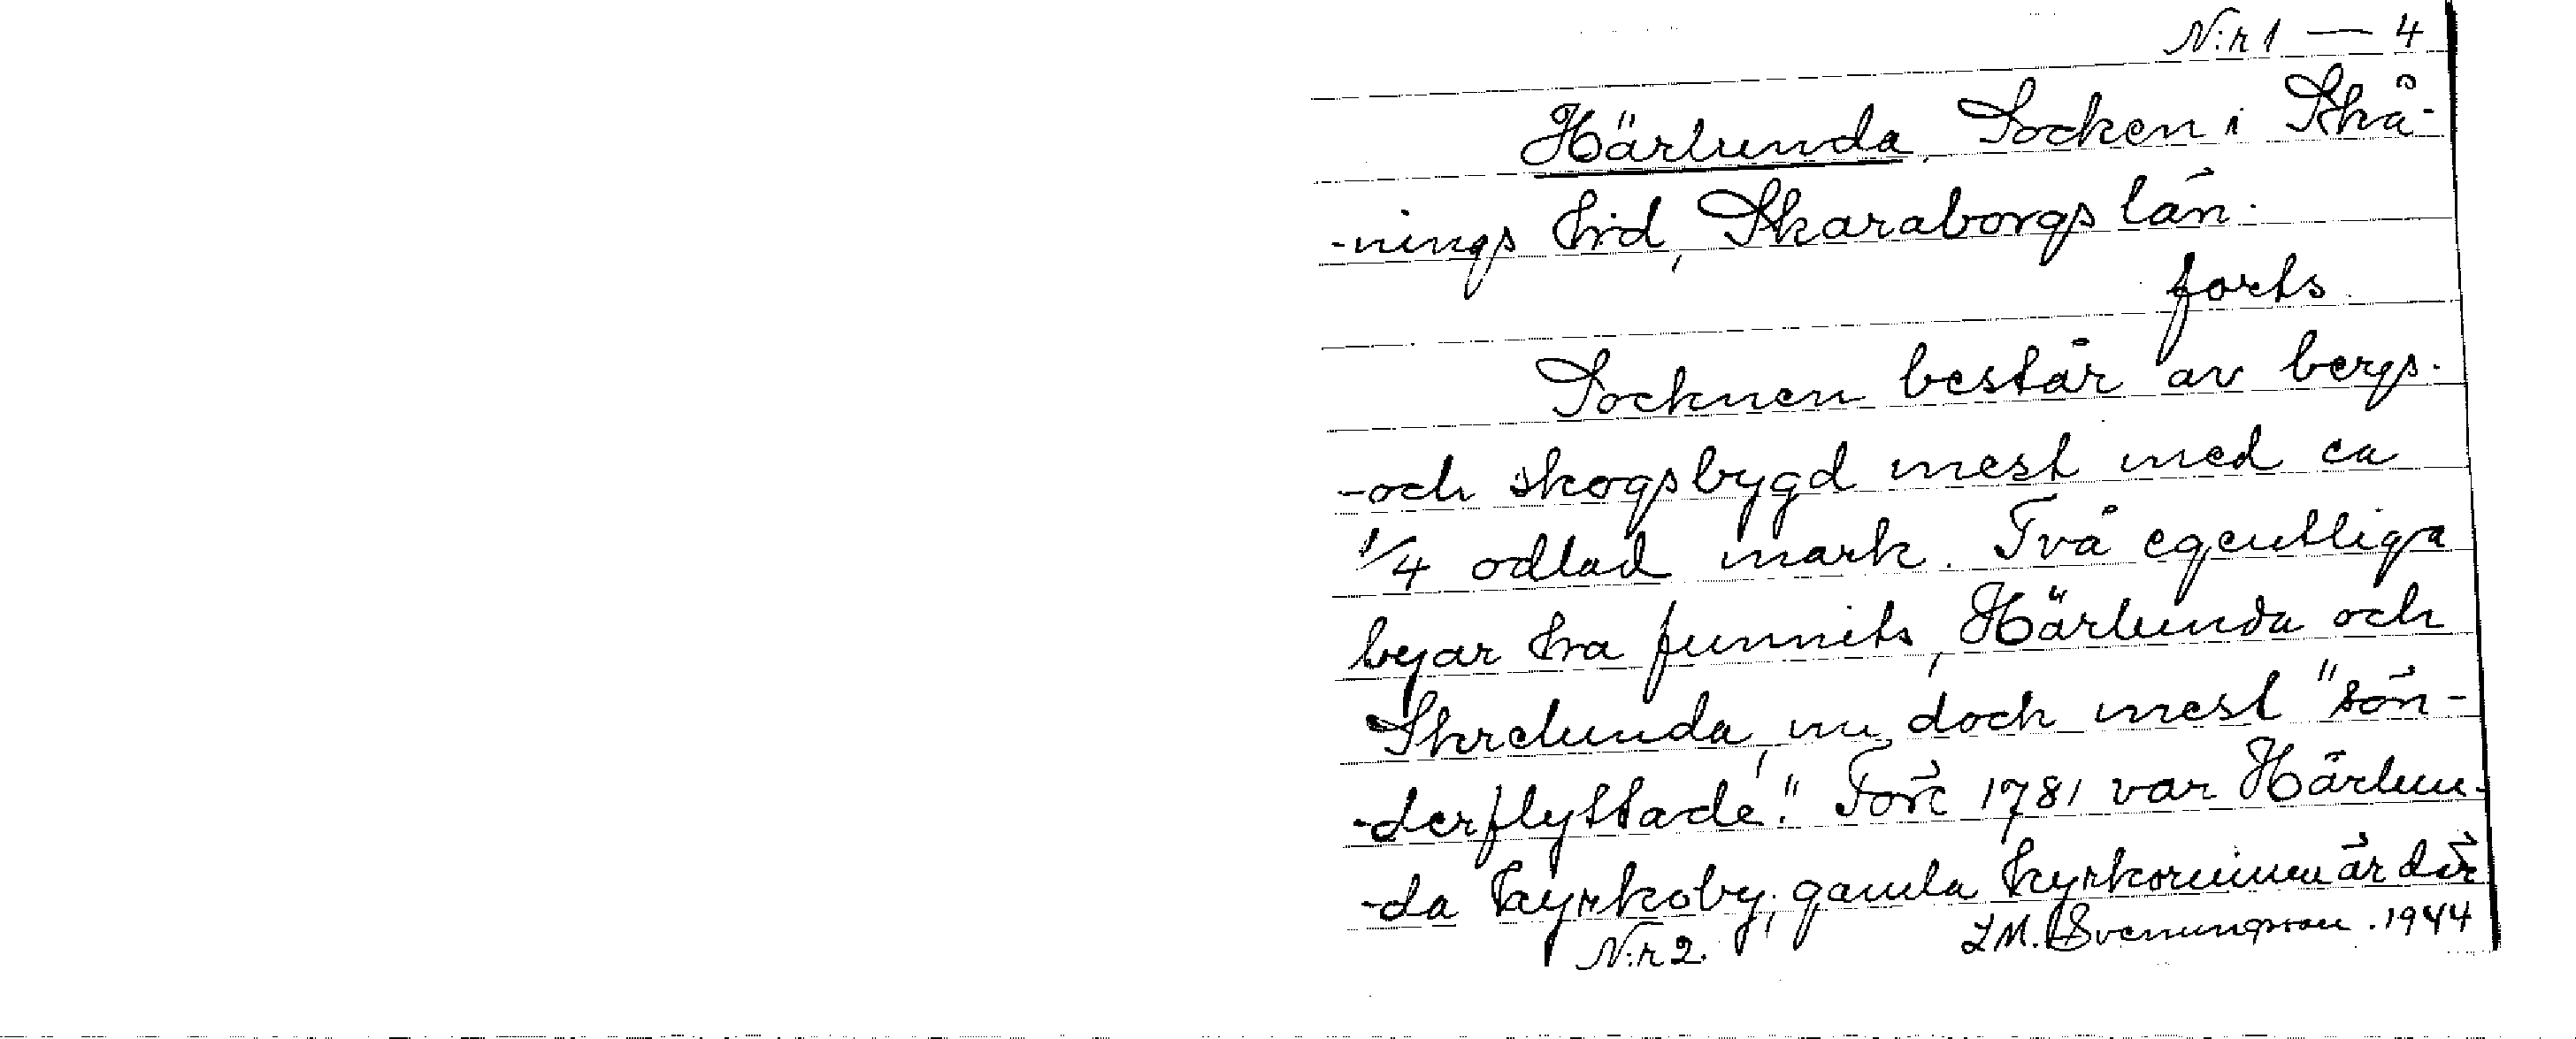 N:r 1 — 4
Härlunda, Socken i Skå-
-nings hrd, Skaraborgs län.
forts
Socknen består av bergs-
-och skogsbygd mest med ca
1/4 odlad mark. Två egentliga
byar ha funnits, Härlunda och
Skrelunda, nu doch mest "sön-
-derflyttade". Före 1781 var Härlun-
-da kyrkoby; gamla kyrkoruinen är där
N:r 2. L M. Svenungsson. 1944